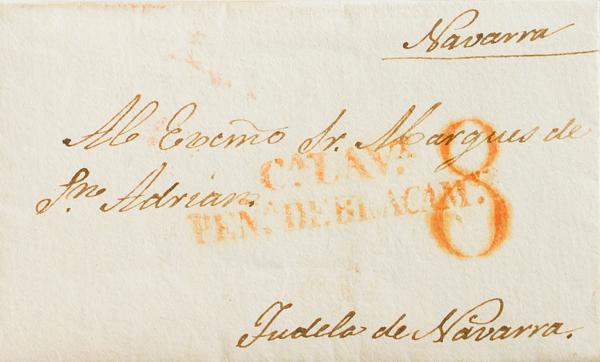 Navarra
Al Excmõ Sr. Marques de
Sn. Adrian.
Cᴬ. LA Vᴬ.
PEN.ᴬ DE BLACAM.ᵀᴱ
8
Tudela de Navarra.